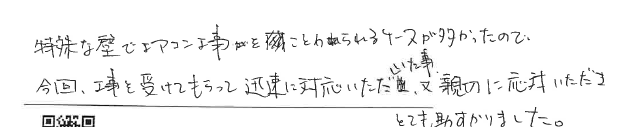 特殊な壁でエアコン工事をことわられるケースが多かったので、
今回、工事を受けてもらって迅速に対応いただいた事、又親切に応対いただき
とても助すかりました。